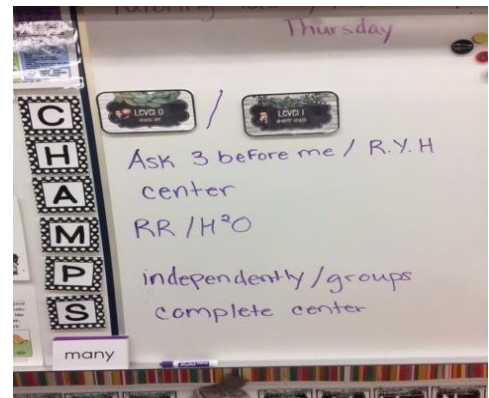 Thursday
C LEVEL 0 / LEVEL 1
H Ask 3 before me / R.Y.H
A center
M RR / H²O
P independently / groups
S complete center
many